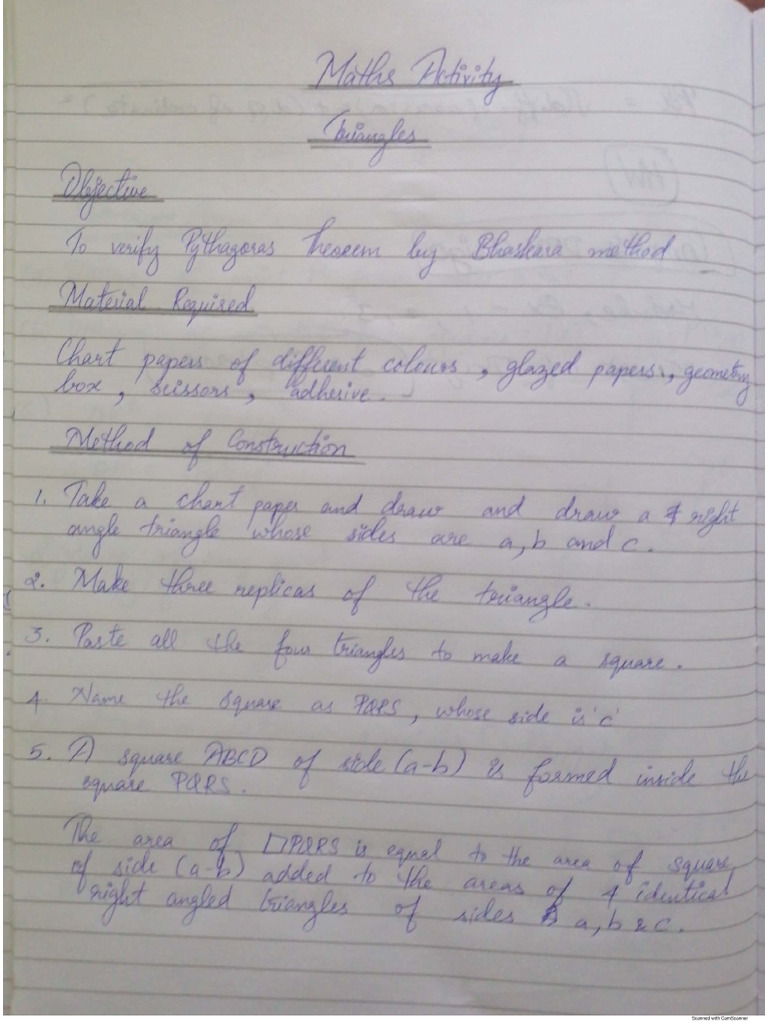 Maths Activity
Triangles
Objective
To verify Pythagoras Theorem by Bhaskara method
Material Required
Chart papers of different colours, glazed papers, geometry
box, scissors, adhesive.
Method of Construction
1. Take a chart paper and draw and draw a right
angle triangle whose sides are a, b and c.
2. Make three replicas of the triangle.
3. Paste all the four triangles to make a square.
4. Name the square as PQRS, whose side is 'c'
5. A square ABCD of side (a-b) is formed inside the
square PQRS.
The area of □PQRS is equal to the area of square
of side (a-b) added to the areas of 4 identical
right angled triangles of sides a, b & c.
Scanned with CamScanner